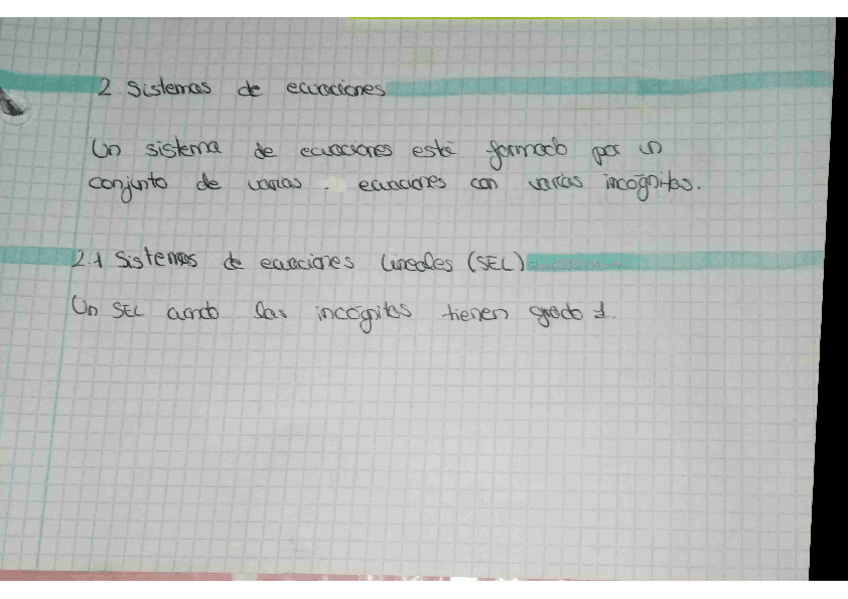 2. Sistemas de ecuaciones
Un sistema de ecuaciones está formado por un
conjunto de varias ecuaciones con varias incógnitas.
2.1 Sistemas de ecuaciones lineales (SEL)
Un SEL cuando las incógnitas tienen grado 1.